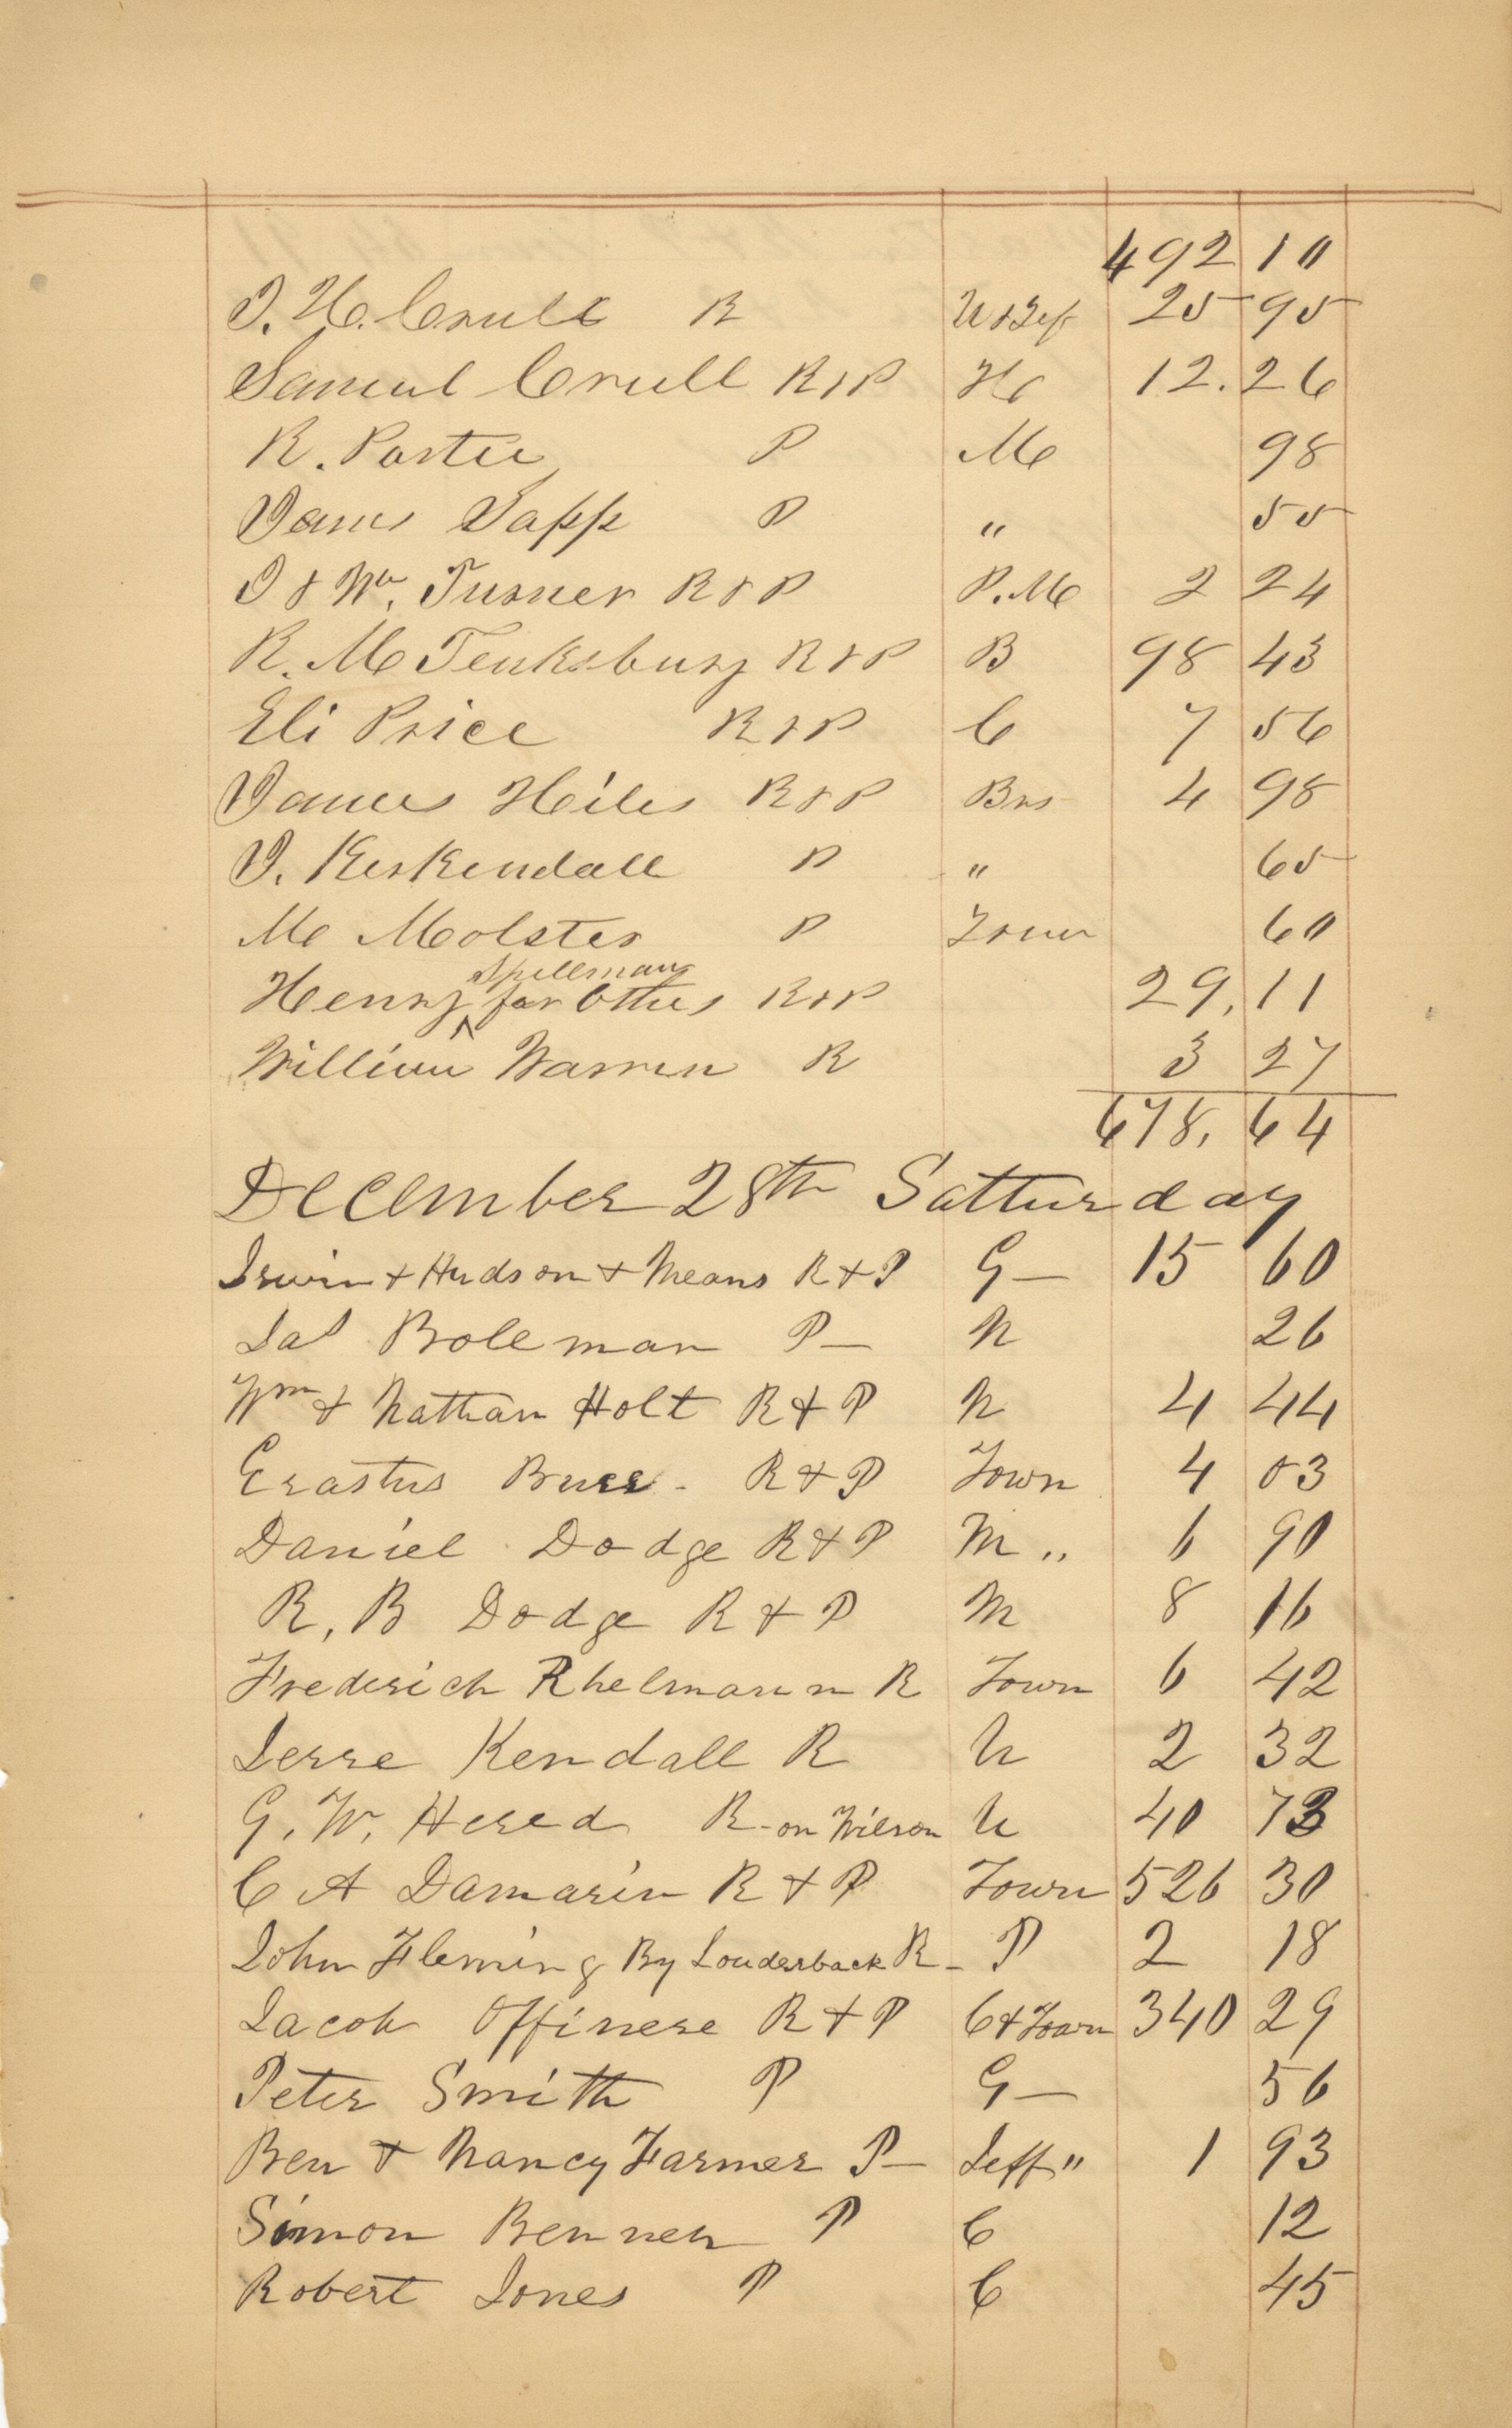 492 10
J. H. Crull R U & Jef 25 95
Samuel Crull R & P H 12. 26
R. Porter P M 98
James Sapp P " 55
J & Wm. Turner R & P P. M 2 24
R. M Teuksbury R & P B 98 43
Eli Price R & P C 7 56
James Hiles R & P Brs 4 98
J. Keskendall P " 65
M Molster P Town 60
Henry Spellman for Others R & P 29, 11
William Warren R 3 27
678, 64
December 28th Satturday
Irwin & Hudson & Means R & P G — 15 60
Jas Boleman P — N 26
Wm & Nathan Holt R & P N 4 44
Erastus Burr - R & P Town 4 03
Daniel Dodge R & P M " 6 90
R, B Dodge R & P M 8 16
Frederich Rhelmann R Town 6 42
Jesse Kendall R U 2 32
G. W. Herod R - on Wilson U 40 73
C A Damarin R & P Town 526 30
John Fleming By Louderback R - P 2 18
Jacob Offinere R & P C & Town 340 29
Peter Smith P G — 56
Ben & Nancy Farmer P — Jeff " 1 93
Simon Benner P C 12
Robert Jones P C 45